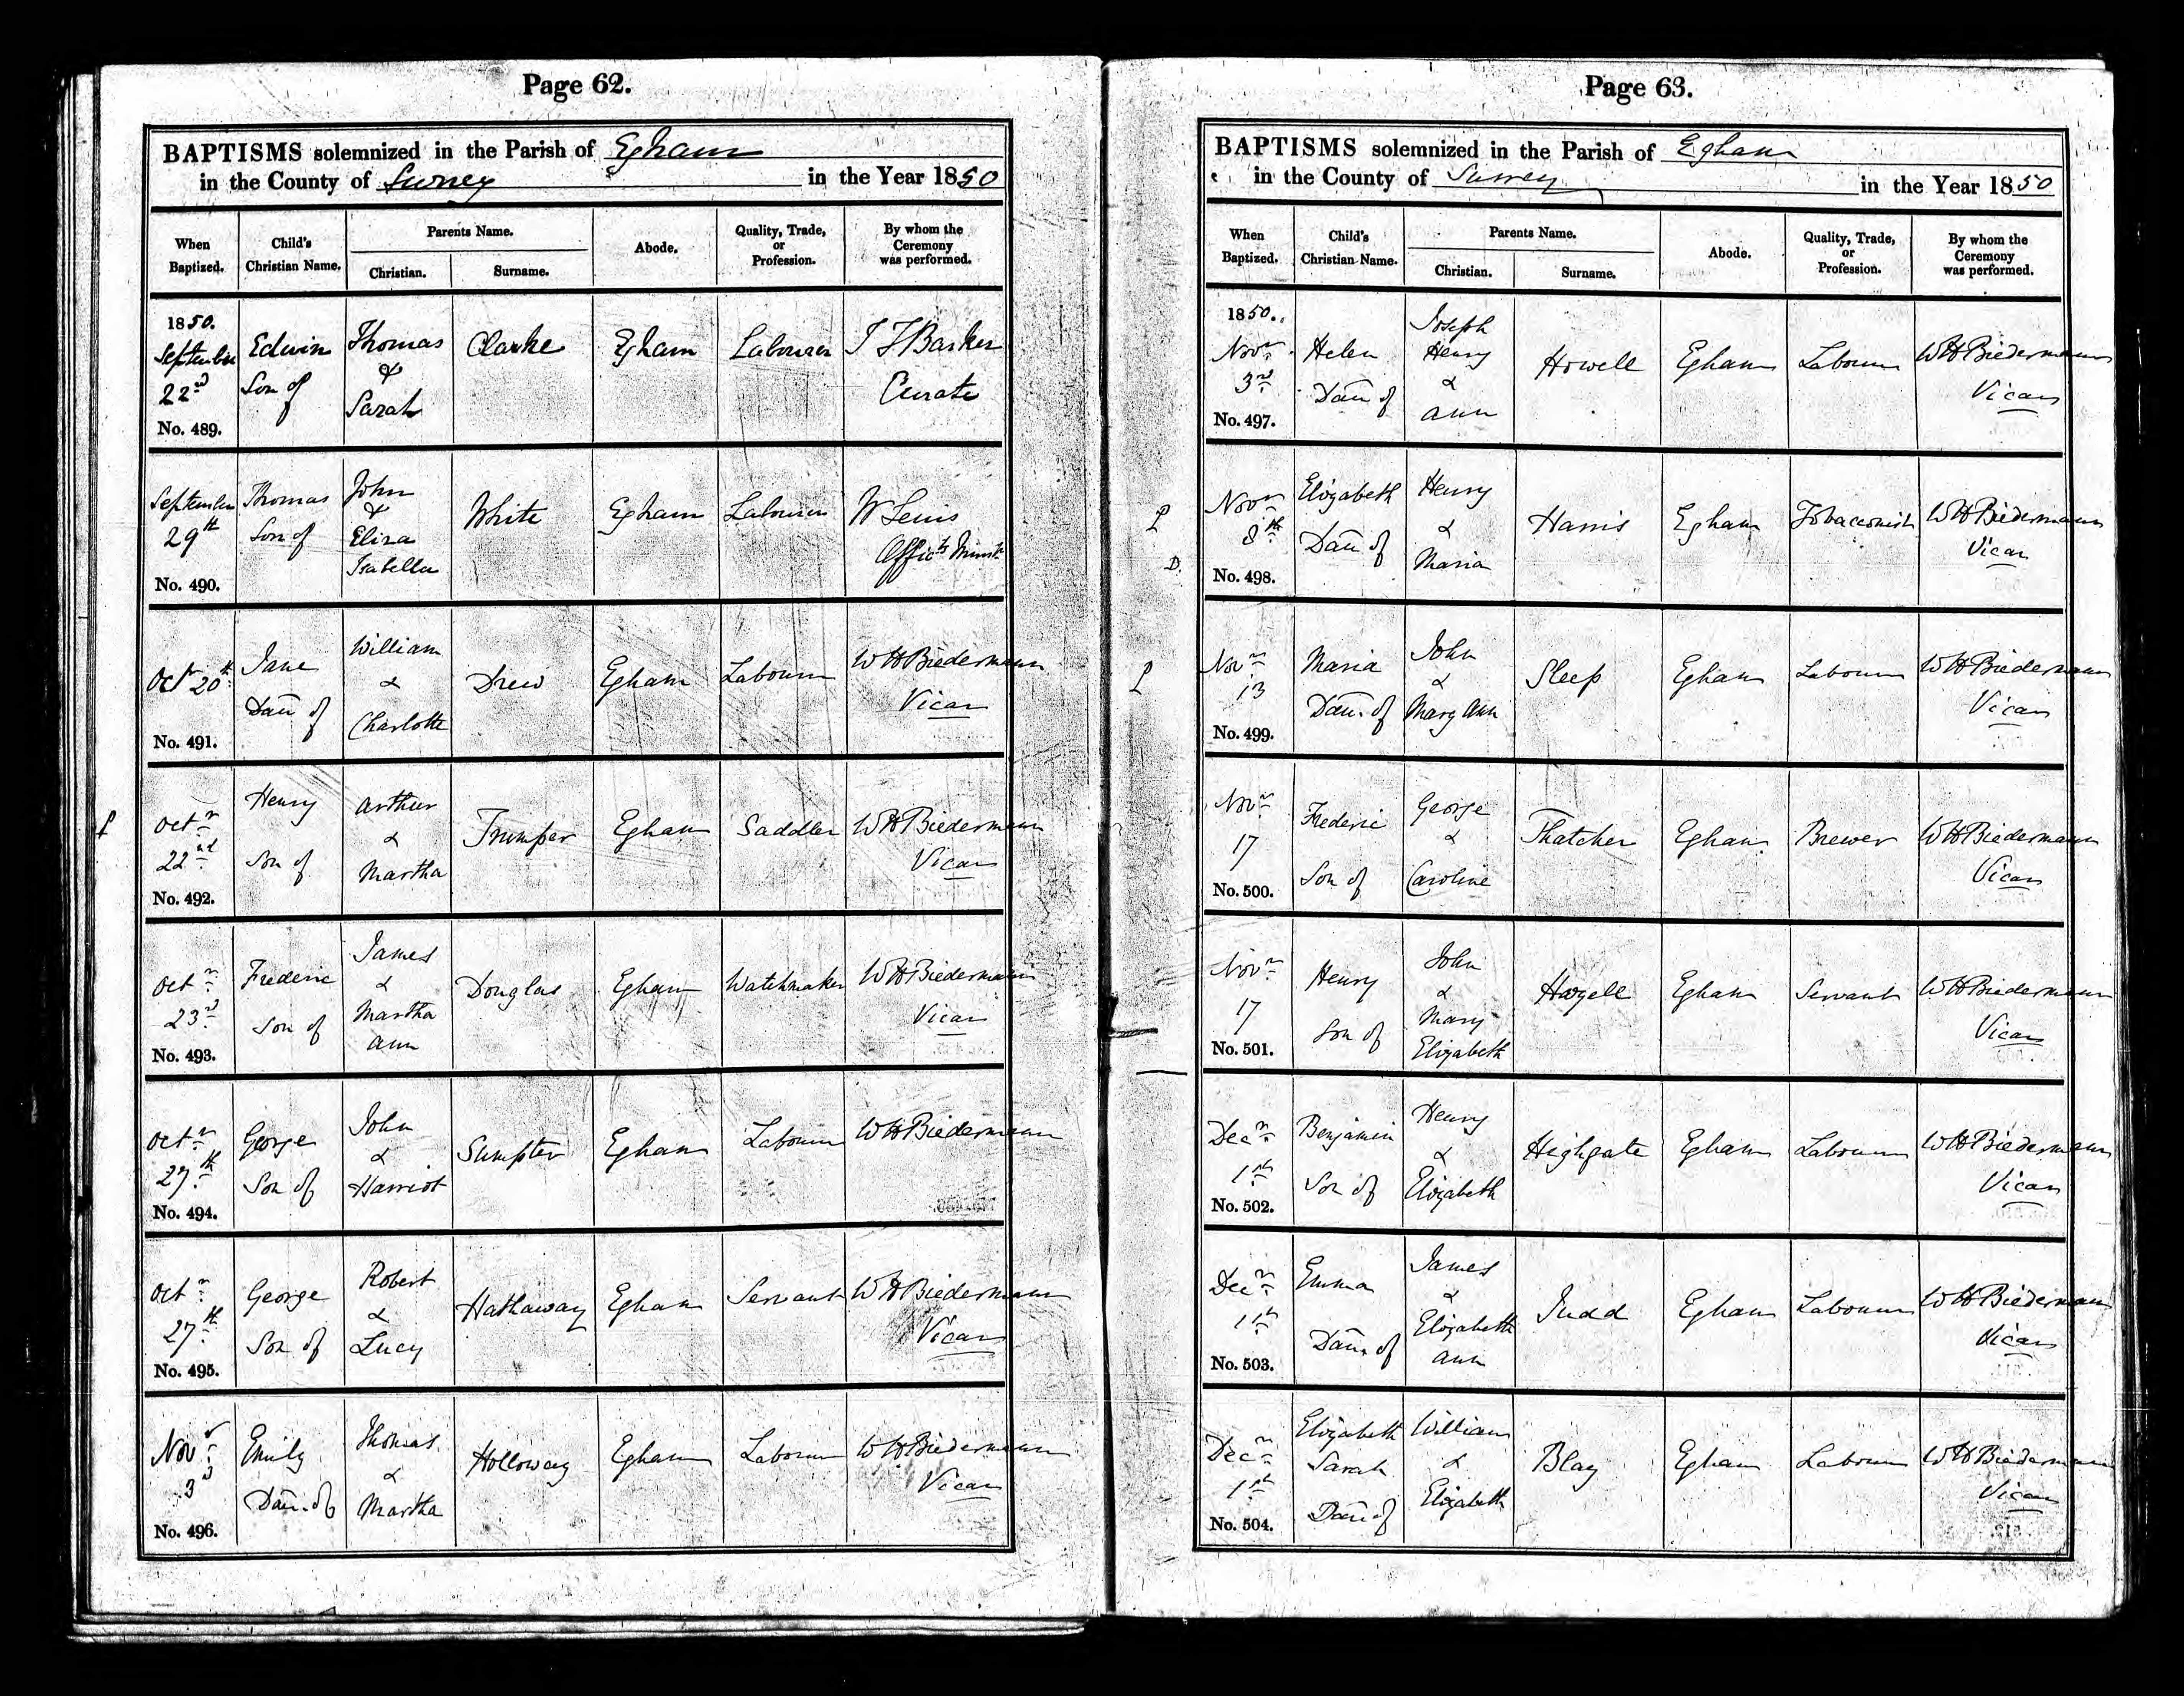 Page 62.
BAPTISMS solemnized in the Parish of Egham
in the County of Surrey in the Year 1850
When Baptized. Child's Christian Name. Parents Name. Christian. Surname. Abode. Quality, Trade, or Profession. By whom the Ceremony was performed.
1850.
September 22nd Edwin Son of Thomas & Sarah Clarke Egham Labourer J F Barker Curate
No. 489.
September 29th Thomas Son of John & Eliza Isabella White Egham Labourer W Lewis Offict Minstr
No. 490.
Octr 20th Jane Daū of William & Charlotte Drew Egham Labourer WHBiedermann Vicar
No. 491.
Octr 22nd Henry Son of Arthur & Martha Trumper Egham Saddler WHBiedermann Vicar
No. 492.
Octr 23rd Frederic Son of James & Martha Ann Douglas Egham Watchmaker WHBiedermann Vicar
No. 493.
Octr 27th George Son of John & Harriot Sumpter Egham Labourer WHBiedermann
No. 494.
Octr 27th George Son of Robert & Lucy Hathaway Egham Servant WHBiedermann Vicar
No. 495.
Novr 3d Emily Daū. of Thomas & Martha Holloway Egham Labourer WHBiedermann Vicar
No. 496.
Page 63.
BAPTISMS solemnized in the Parish of Egham
in the County of Surrey in the Year 1850
When Baptized. Child's Christian Name. Parents Name. Christian. Surname. Abode. Quality, Trade, or Profession. By whom the Ceremony was performed.
1850.
Novr 3rd Helen Daū of Joseph Henry & Ann Howell Egham Labourer WHBiedermann Vicar
No. 497.
Novr 8th Elizabeth Daū of Henry & Maria Harris Egham Tobacconist WHBiedermann Vicar
No. 498.
Novr 13 Maria Daū. of John & Mary Ann Sleep Egham Labourer WHBiedermann Vicar
No. 499.
Novr 17 Frederic Son of George & Caroline Thatcher Egham Brewer WHBiedermann Vicar
No. 500.
Novr 17 Henry Son of John & Mary Elizabeth Hazell Egham Servant WHBiedermann Vicar
No. 501.
Decr 1st Benjamin Son of Henry & Elizabeth Highgate Egham Labourer WHBiedermann Vicar
No. 502.
Decr 1st Emma Daū. of James & Elizabeth Ann Judd Egham Labourer WHBiedermann Vicar
No. 503.
Decr 1st Elizabeth Sarah Daū of William & Elizabeth Blay Egham Labourer WHBiedermann Vicar
No. 504.